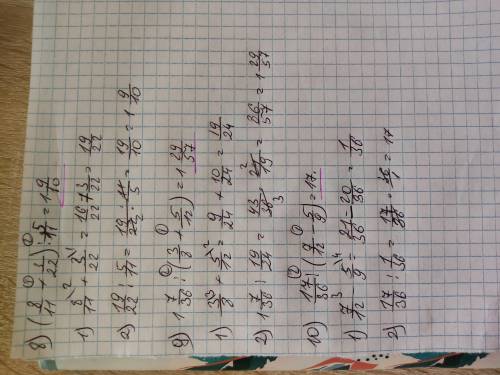 8) (8/11 + 1/22) : 5/11 = 1 9/10
1) 8/11 + 3/22 = 16+3/22 = 19/22
2) 19/22 : 5/11 = 19/22 · 11/5 = 19/10 = 1 9/10
9) 1 7/36 : (3/8 + 5/12) = 1 29/57
1) 3/8 + 5/12 = 9/24 + 10/24 = 19/24
2) 1 7/36 : 19/24 = 43/36 · 24/19 = 86/57 = 1 29/57
10) 17/36 : (7/12 - 5/9) = 17.
1) 7/12 - 5/9 = 21-20/36 = 1/36
2) 17/36 : 1/36 = 17/36 · 36/1 = 17